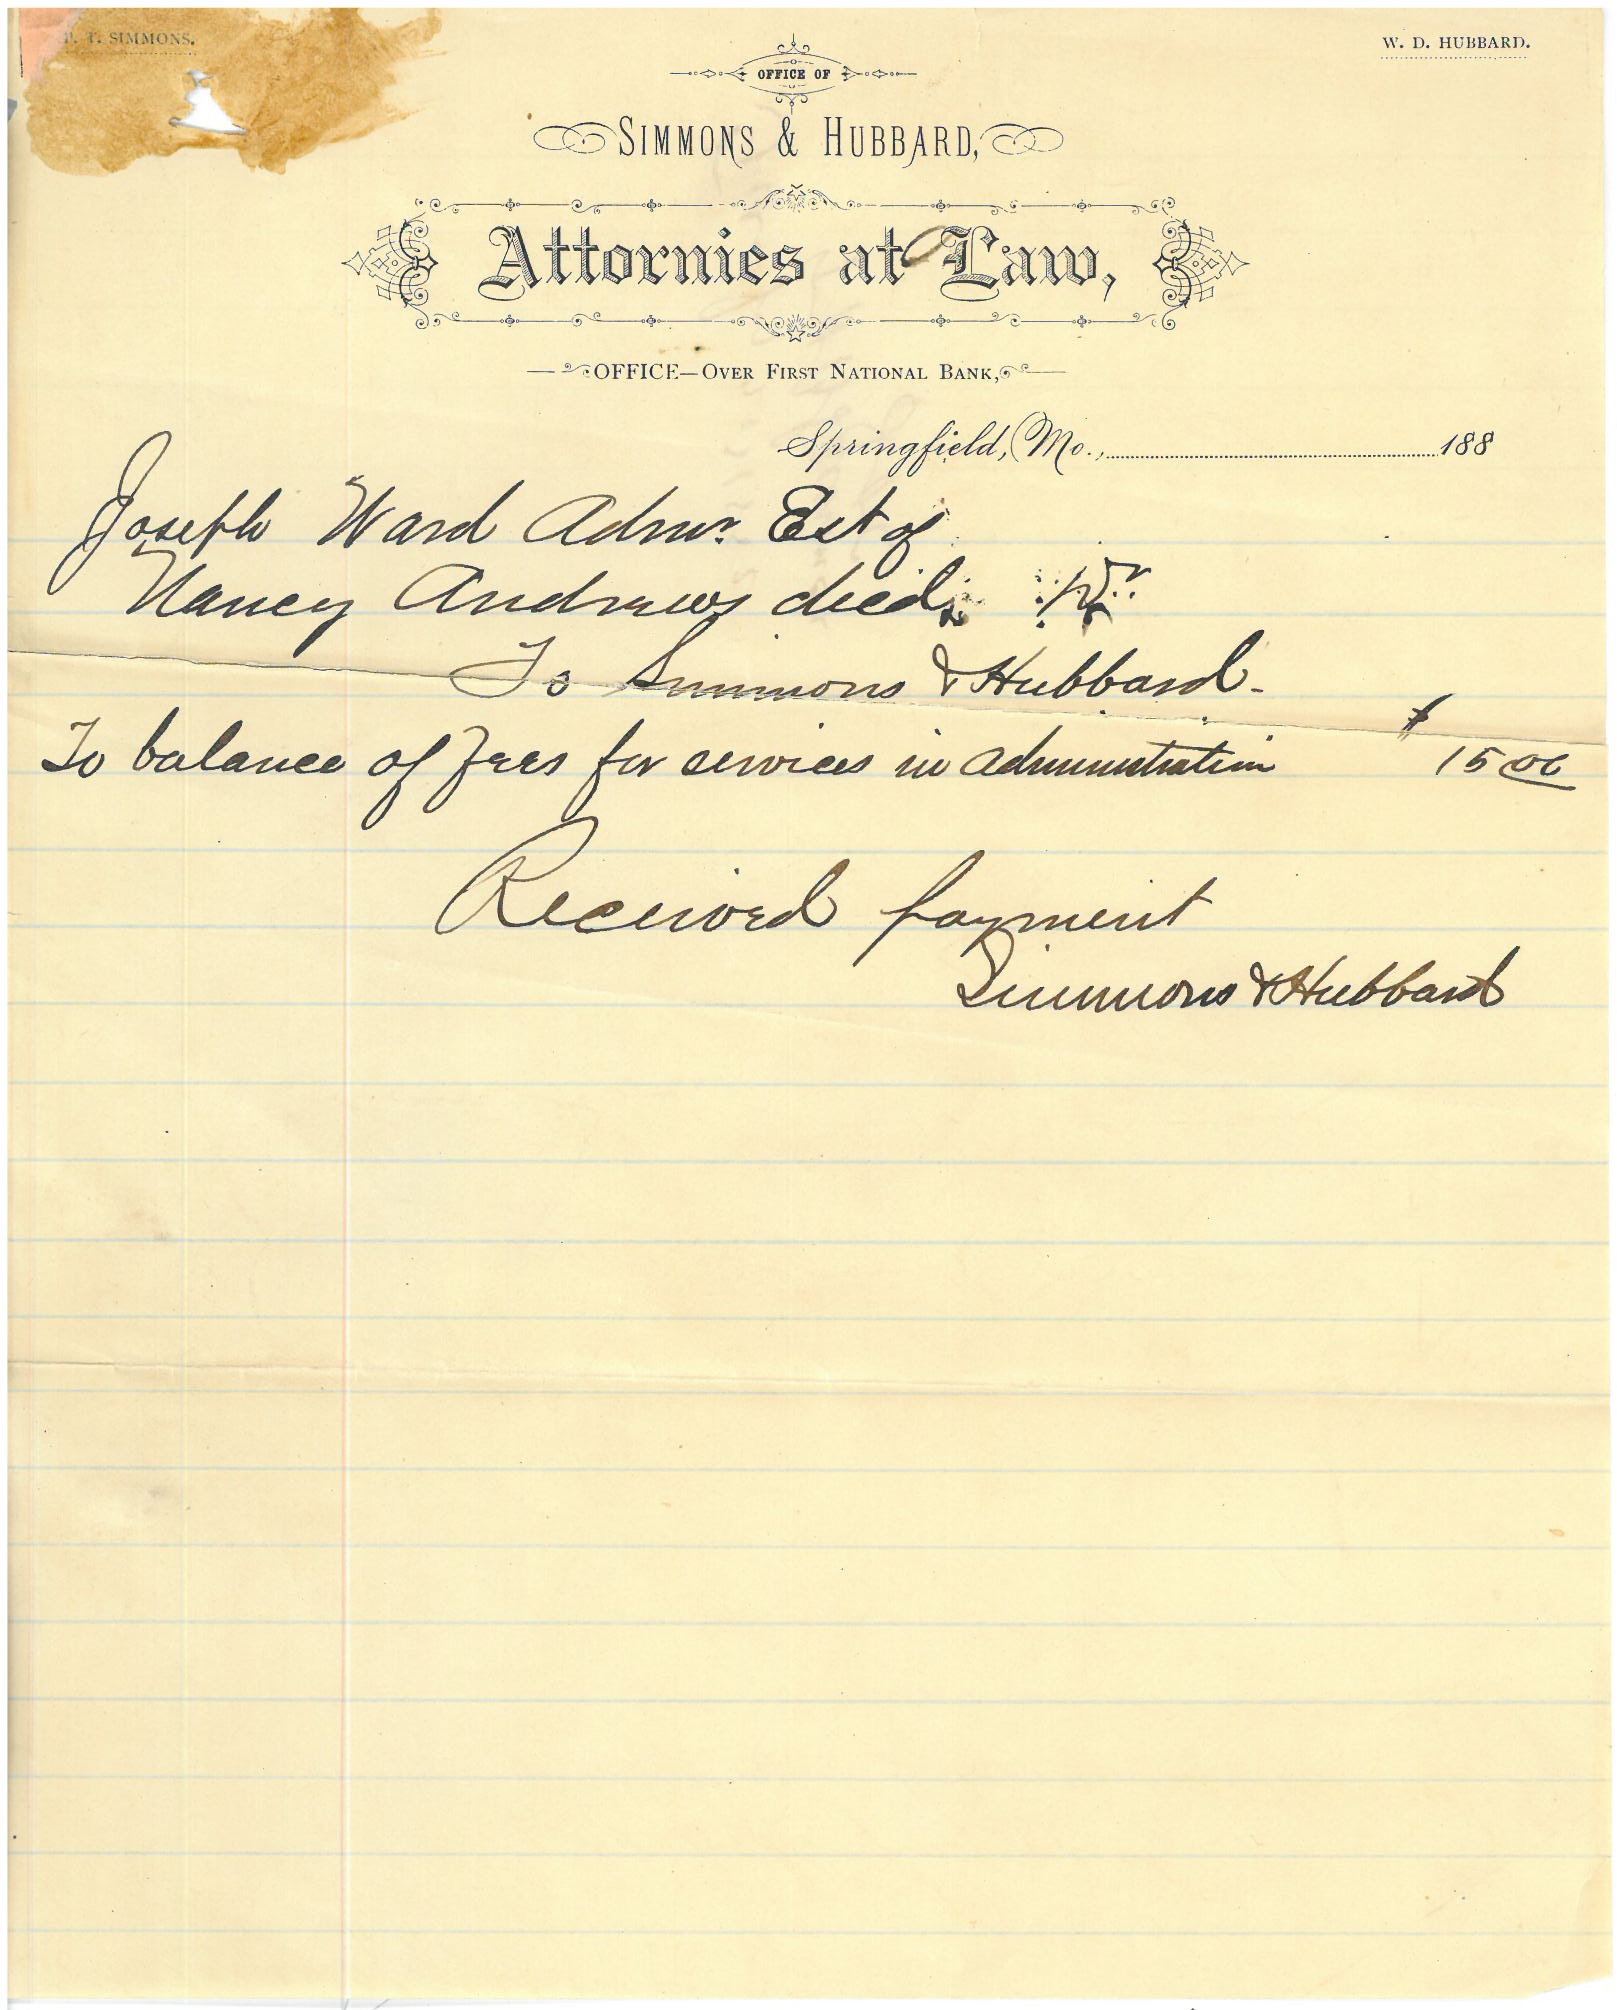 T. SIMMONS.
W. D. HUBBARD.
OFFICE OF
SIMMONS & HUBBARD,
Attornies at Law,
OFFICE—OVER FIRST NATIONAL BANK,
Springfield, Mo., 188
Joseph Ward Admr. Est of
Nancy Andrews decd. Dr
To Simmons & Hubbard.
To balance of fees for services in administration $15.00
Received payment
Simmons & Hubbard